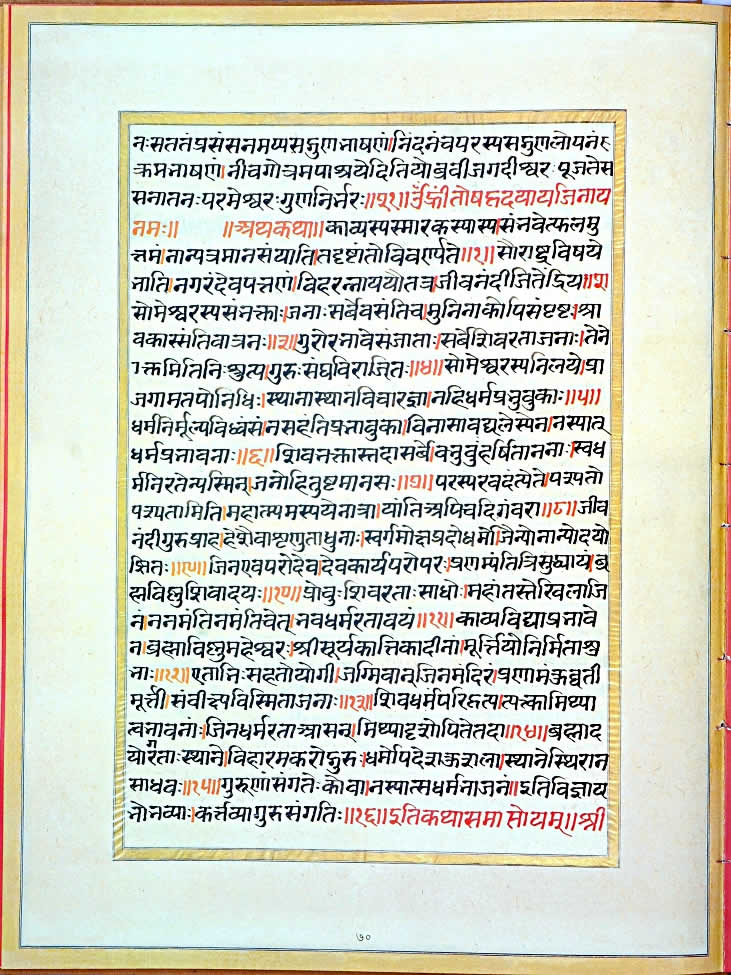 नःसततंप्रसंसनमप्यसद्गुणभाषणं।निंदनंवपरस्यसद्गुणलोपनंह
क्रमभाषणं।नीवगोत्रमपाश्रयेदितियोब्रवीजगदीश्वरःपूजतेस
सनातनःपरमेश्वरःगुणनिर्भरः॥५१॥ॐह्रींतोषहृदयायजिनाय
नमः॥ ॥अथकथा॥काव्यस्पस्मारकस्पास्पसंभवेत्फलमु
त्तमं।नान्यत्रमानसंयाति।तदृष्टांतोविवर्ण्पते॥१॥सौराष्ट्रविषये
भाति।नगरंदेवपत्तणं।विहरन्नाययौतत्र।जीवनंदीजितेंद्रिय॥२॥
सोमेश्वरस्पसंभक्ताः।जनाःसर्वेवसंतिव।मुनिनाकोपिसंदृष्टः।श्रा
वकास्संतिवात्रनः॥३॥गुरोरभावेसंजाताः।सर्वेशिवरताजनाः।तेने
ाक्तमितिनिःश्रुत्प।गुरुःसंघविराजितः॥४॥सोमेश्वरस्पनिलये।प्रा
जगामतपोनिधिः।स्थानास्थानविचारज्ञा।नहिधर्मप्रभुवुकाः॥५॥
धर्मनिर्मूल्पविध्वसं।नसहंतिप्रभावुका।विनासावद्यलेस्पेन।नस्पात्
धर्मप्रभावनाः॥६॥शिवभक्तास्तदासर्वे।वभुवुर्हर्षिताननाः।स्वध
र्मनिरतेन्पस्मिन्।जनोहितुष्टमानसः॥७॥परस्परंवदंत्येते।पश्पतो
पश्पतामिति।महात्म्यमस्पयेनात्रा।यांतिअपिवदिगंवरा॥८॥जीव
नंदीगुरुप्राह।हेशैवाशृणुताधुनाः।स्वर्गमोक्षप्रदोधर्मो।जैन्योनान्पोदयो
ज्ञितः॥९॥जिनएवपरोदेव।देवकार्यपरोपरः।प्रणम्पंतित्रिमुध्याय।ब्र
ह्मविष्णुशिवादयः॥१०॥प्रोवुःशिवरताःसाधो।महांतस्तेखिलाजि
नं।नमंतिनमंतिवेत्।नवधर्मरतावयं॥११॥काव्यविद्याप्रभावे
न।ब्रह्माविष्णुमहेश्वरः।श्रीसूर्यकार्त्तिकादीनां।मूर्त्तियोनिर्मिताशु
भाः॥१२॥एतानिःसहतोयोगी।जग्मिवान्जिनमंदिरं।प्रणामंकुर्वती
मूर्त्ती।संवीक्ष्यविस्मिताजनाः॥१३॥शिवधर्मपरिहृत्प।त्पक्त्कामिथ्या
त्वभावनां।जिनधर्मरताआसन्।मिथ्यादृशोपितेतदा॥१४॥ब्रह्माद
योर्गताःस्थाने।विहारमकरोद्गुरुः।धर्मोपदेशकुशला।स्थानेस्थिरान
साधवः॥१५॥गुरुणांसंगतेःकोवा।नस्पात्सधर्मभाजनं॥इतिविज्ञाय
भोभव्याः।कर्त्तव्यागुरुसंगतिः॥१६॥इतिकथासमाप्तोयम्॥श्री
७०